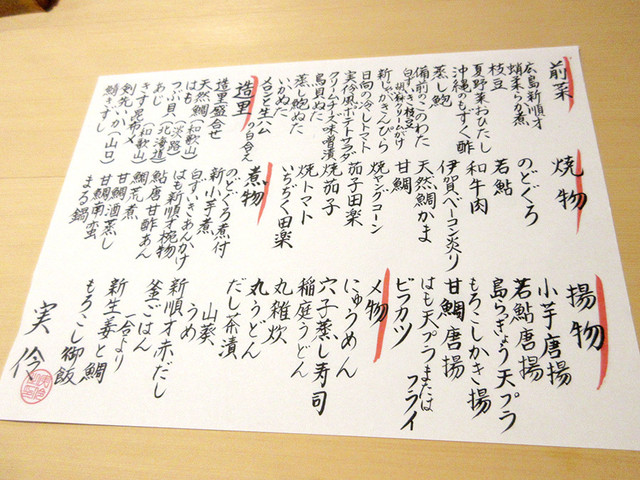 前菜
広島新順才
蛸柔らか煮
枝豆
夏野菜おひたし
沖縄のもずく酢
蒸し鮑
備前このわた
白ずいき枝豆
胡麻クリームがけ
新じゃがきんぴら
日向の冷しトマト
実伶風ポテトサラダ
クリームチーズ味噌漬
鳥貝ぬた
蒸し鮑ぬた
いかぬた
メロンと生ハム
の白合え
造里
造里盛合せ
天然鯛(和歌山)
はも(淡路)
つぶ貝(北海道)
あじ(和歌山)
きす昆布〆
剣先いか(山口)
鯖きずし
焼物
のどぐろ
若鮎
和牛肉
伊賀ベーコン炙り
天然鯛かま
甘鯛
焼ヤングコーン
茄子田楽
焼茄子
焼トマト
いちぢく田楽
煮物
のどぐろ煮付
新小芋煮
白ずいきあんかけ
はも新順才椀物
鮎唐甘酢あん
鯛荒煮
甘鯛酒蒸し
甘鯛南蛮
まる鍋
揚物
小芋唐揚
若鮎唐揚
島らっきょう天プラ
もろこしかき揚
甘鯛唐揚
はも天プラまたはフライ
ビフカツ
〆物
にゅうめん
穴子蒸し寿司
稲庭うどん
丸雑炊
丸うどん
だし茶漬
山葵
うめ
新順才赤だし
釜ごはん
一合より
新生姜と鯛
もろこし御飯
実伶